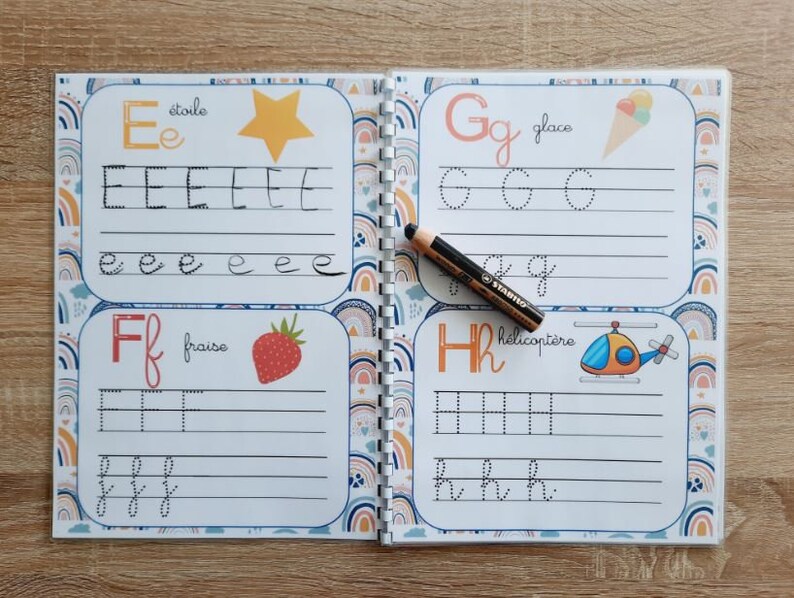 Ee étoile
E E E E E E
e e e e e e
Ff fraise
F F F
f f f
Gg glace
G G G
g g g
STABILO
Hh hélicoptère
H H H H
h h h